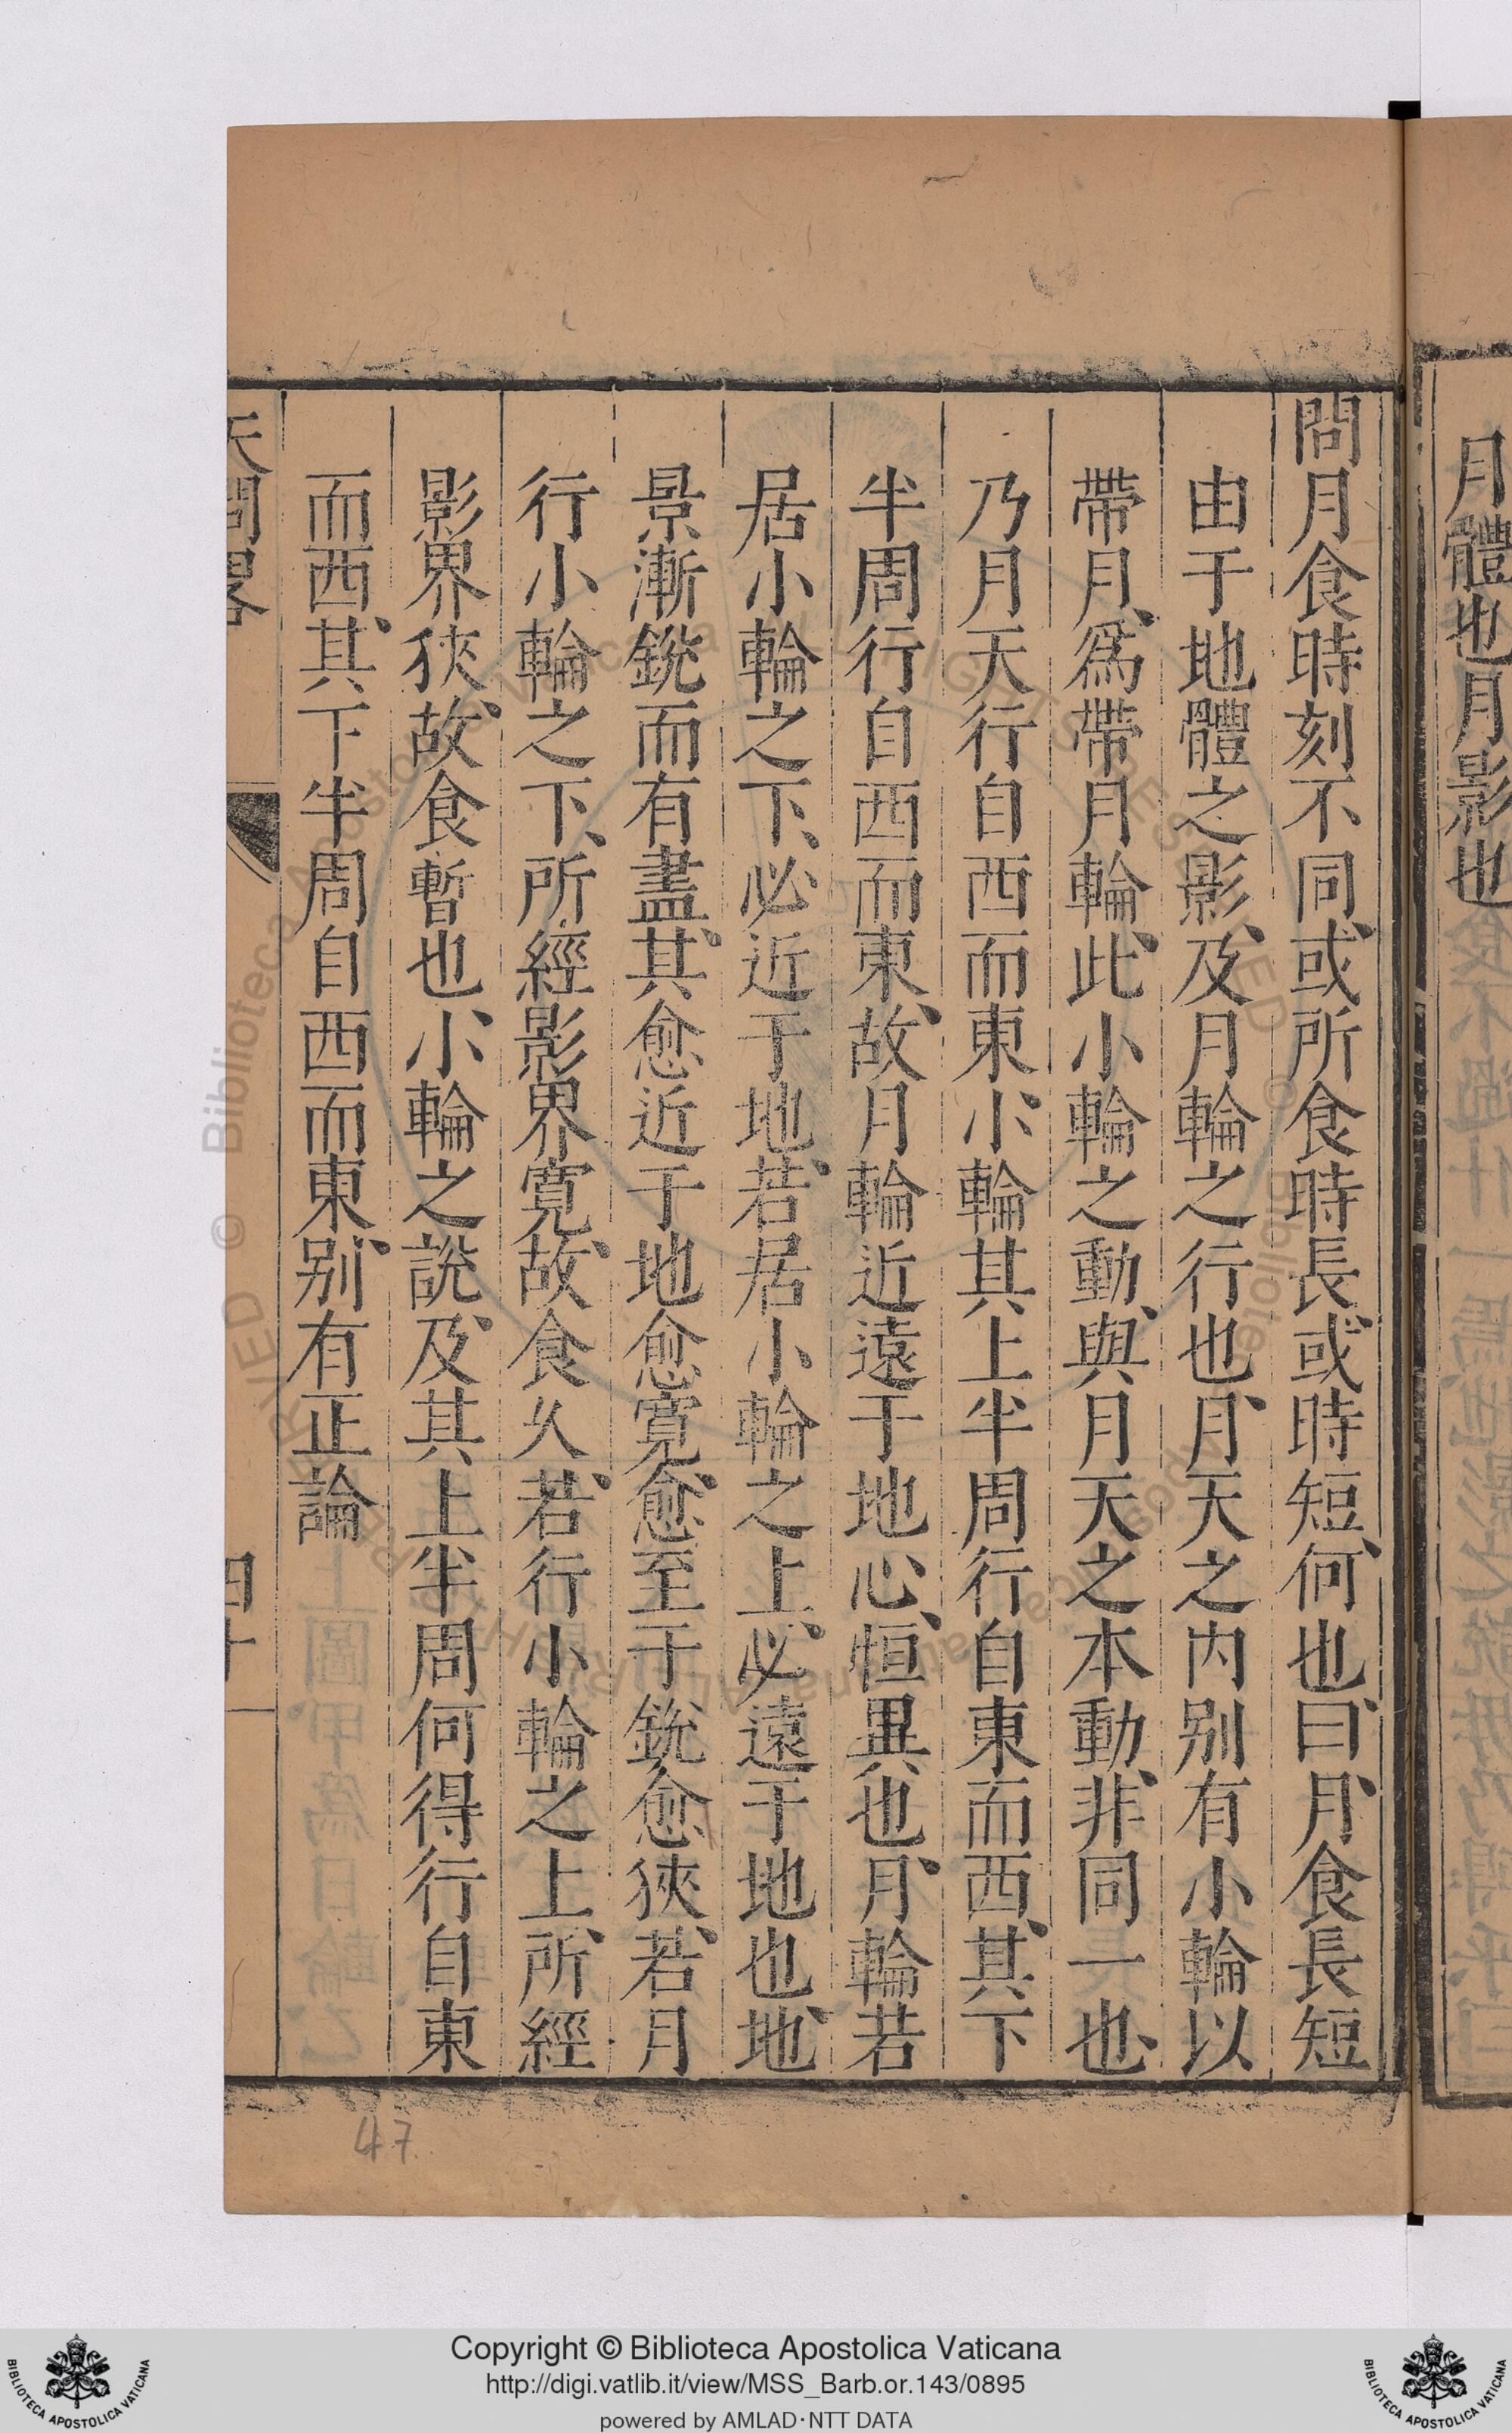 月體也月影也
問月食時刻不同、或所食時長、或時短、何也、曰、月食長短
由于地體之影、及月輪之行也、月天之内别有小輪以
帶月、爲帶月輪、此小輪之動、與月天之本動、非同一也、
乃月天行自西而東、小輪其上半周行自東而西、其下
半周行自西而東、故月輪近遠于地心、恒異也、月輪若
居小輪之下、必近于地、若居小輪之上、必遠于地也、地
景漸銳而有盡、其愈近于地愈寛、愈至于銳愈狹、若月
行小輪之下、所經影界寛、故食久、若行小輪之上、所經
影界狹、故食暫也、小輪之說、及其上半周何得行自東
而西、其下半周自西而東、别有正論
天問畧
四十
47
Copyright © Biblioteca Apostolica Vaticana
http://digi.vatlib.it/view/MSS_Barb.or.143/0895
powered by AMLAD·NTT DATA
BIBLIOTECA APOSTOLICA VATICANA
BIBLIOTECA APOSTOLICA VATICANA